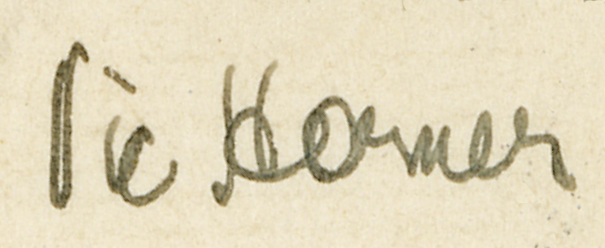 Vic Horner